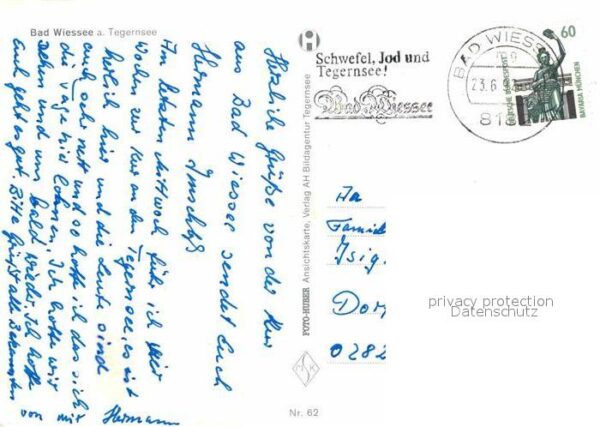 Bad Wiessee a. Tegernsee
Herzliche Grüße von der Kur
aus Bad Wiessee sendet Euch
Hermann
Am letzten Mittwoch fuhr ich für
Wochen zur Kur an den Tegernsee, es ist
herrlich hier und die Leute sind
auch sehr nett und so hoffe ich das sich
die Tage hier lohnen. Ich hoffe wir
sehen uns bald wieder. Ich hoffe
Euch geht es gut. Bitte grüßt alle Bekannten
von mir Hermann
FOTO-HUBER Ansichtskarte, Verlag AH Bildagentur Tegernsee
Nr. 62
Schwefel, Jod und
Tegernsee!
Bad Wiessee
BAD WIESSEE
23.6
60
DEUTSCHE BUNDESPOST
BAVARIA MÜNCHEN
An
Famili
Isig.
Dor
0282
privacy protection
Datenschutz